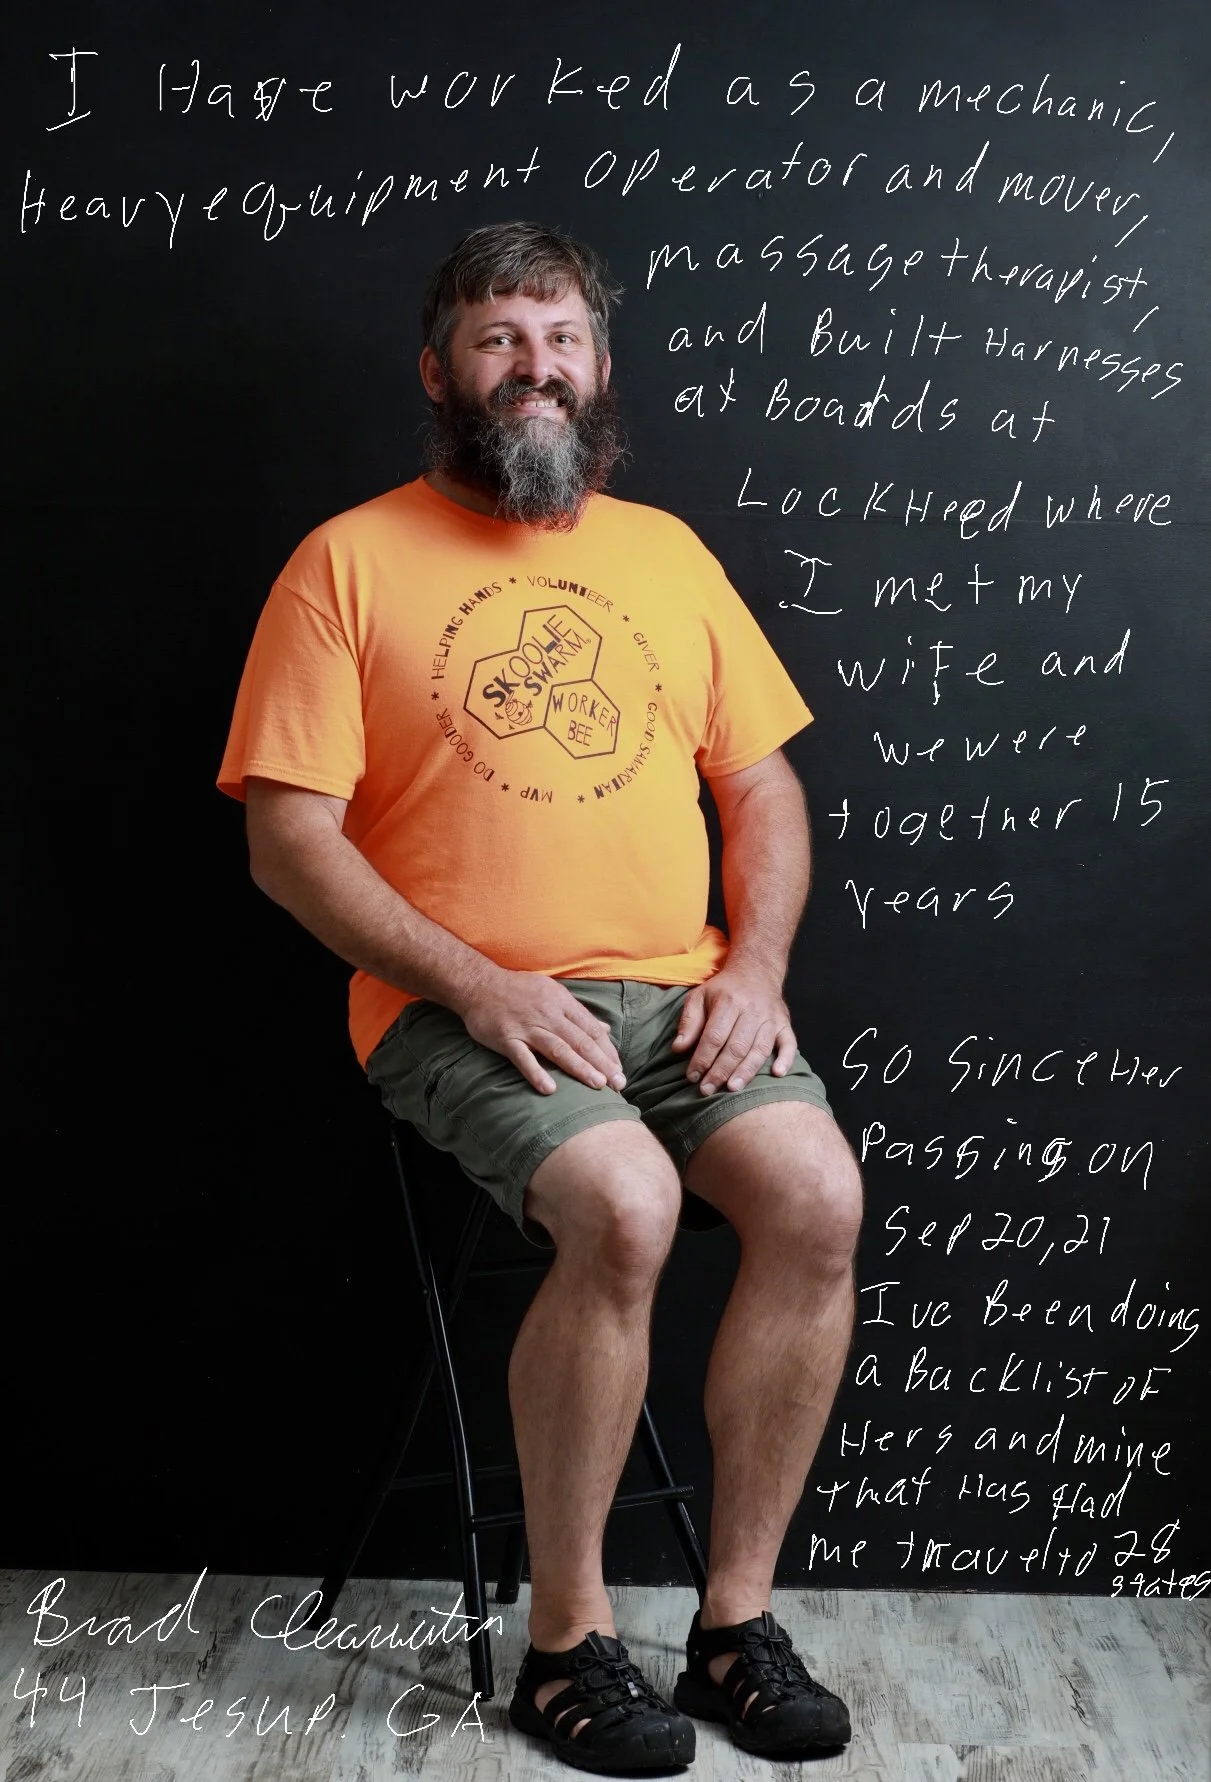 I Have worked as a mechanic,
Heavy equipment operator and mover,
massage therapist,
and Built Harnesses
at Boards at
LockHeed where
I met my
wife and
we were
together 15
years
So Since Her
Passing on
Sep 20, 21
Ive Been doing
a Bucklist of
Hers and mine
that Has Had
me travel to 28
states
HELPING HANDS * VOLUNTEER * GIVER * GOOD SAMARITAN * MVP * DO GOODER *
SKOOLIE
SWARM
WORKER
BEE
Brad
44 Jesup. GA